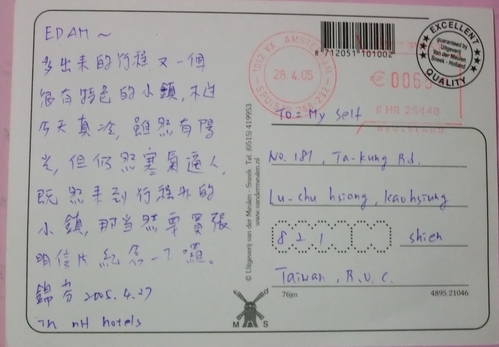 EDAM~
多出來的行程又一個
很有特色的小鎮,不過
今天真冷,雖然有陽
光,但仍然寒氣逼人,
既然來到行程外的
小鎮,那當然要買張
明信片紀念一下囉。
錦芬 2005.4.27
in nH hotels
8 712051 101002
1002 XX AMSTERDAM
28.4.05
SPUISTR
€0065
NEDERLAND
EXCELLENT
guaranteed by
Uitgeverij
Van der Meulen
Sneek - Holland
QUALITY
To = My self
No. 181, Ta-kung Rd.
Lu-chu hsiang, kaohsiung
821 shien
Taiwan, R.O.C.
© Uitgeverij van der Meulen - Sneek Tel. (0515) 419953
www.vandermeulen.nl
M A S
76jm
4895.21046